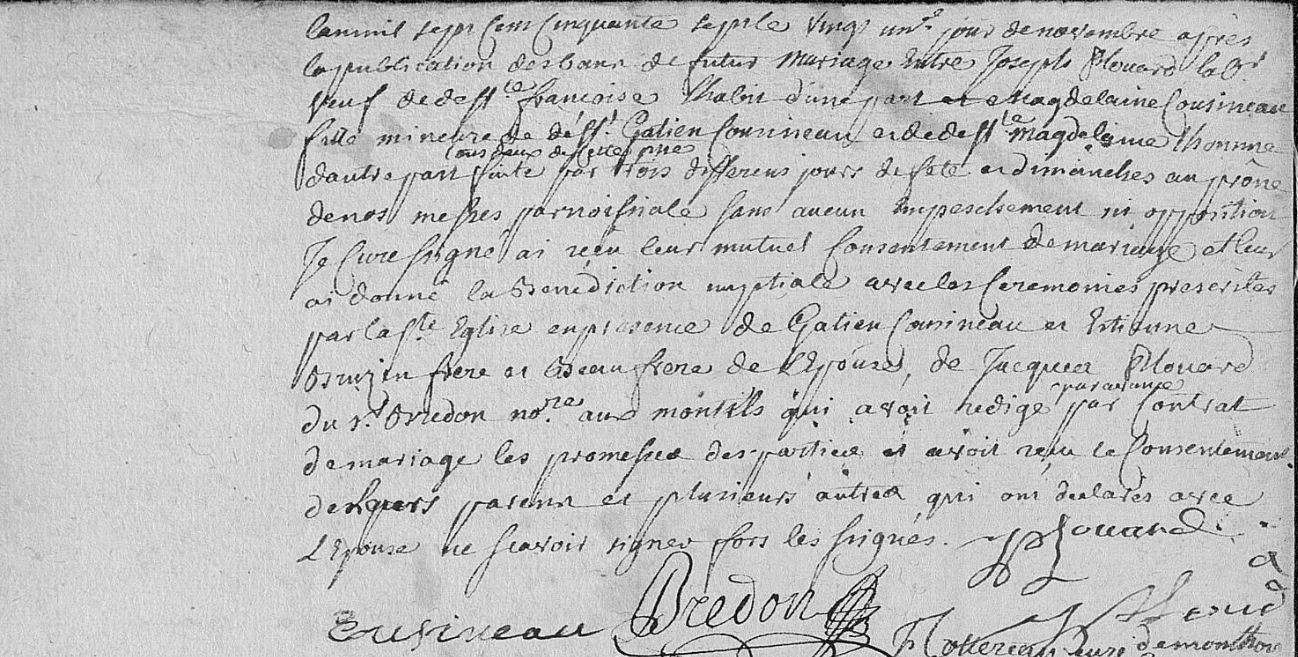 lan mil sept Cent Cinquante sept le vingt un.e jour de novembre apres
la publication des bans de futur mariage entre Joseph Plouard lab.r
veuf de deff.te francoise d'une part et Magdelaine Cousineau
fille mineure de deff.t Gatien Cousineau et de deff.te magdelaine thomme
tous deux de cette psse
d'autre part faite par trois differens jours de fete et dimanches au prône
de nos messes parroissiale sans aucun empeschement ni opposition
Je Curé signé ai reçu leur mutuel Consentement de mariage et leur
ai donné la Benediction nuptiale avec les Ceremonies prescrites
par la S.te Eglise en presence de Gatien Cousineau et Estienne
frere et Beaufrere de l'Epouse, de Jacques Plouard
du s.r Bredon no.re aux montils qui avoit redigé par avance par Contrat
de mariage les promesses des parties et avoit reçu le Consentement
de leurs parens et plusieurs autres qui ont declarés avec
L'Epouse ne scavoir signer fors les signés. Plouard
Cusineau Bredon
Cottereau curé de monthou